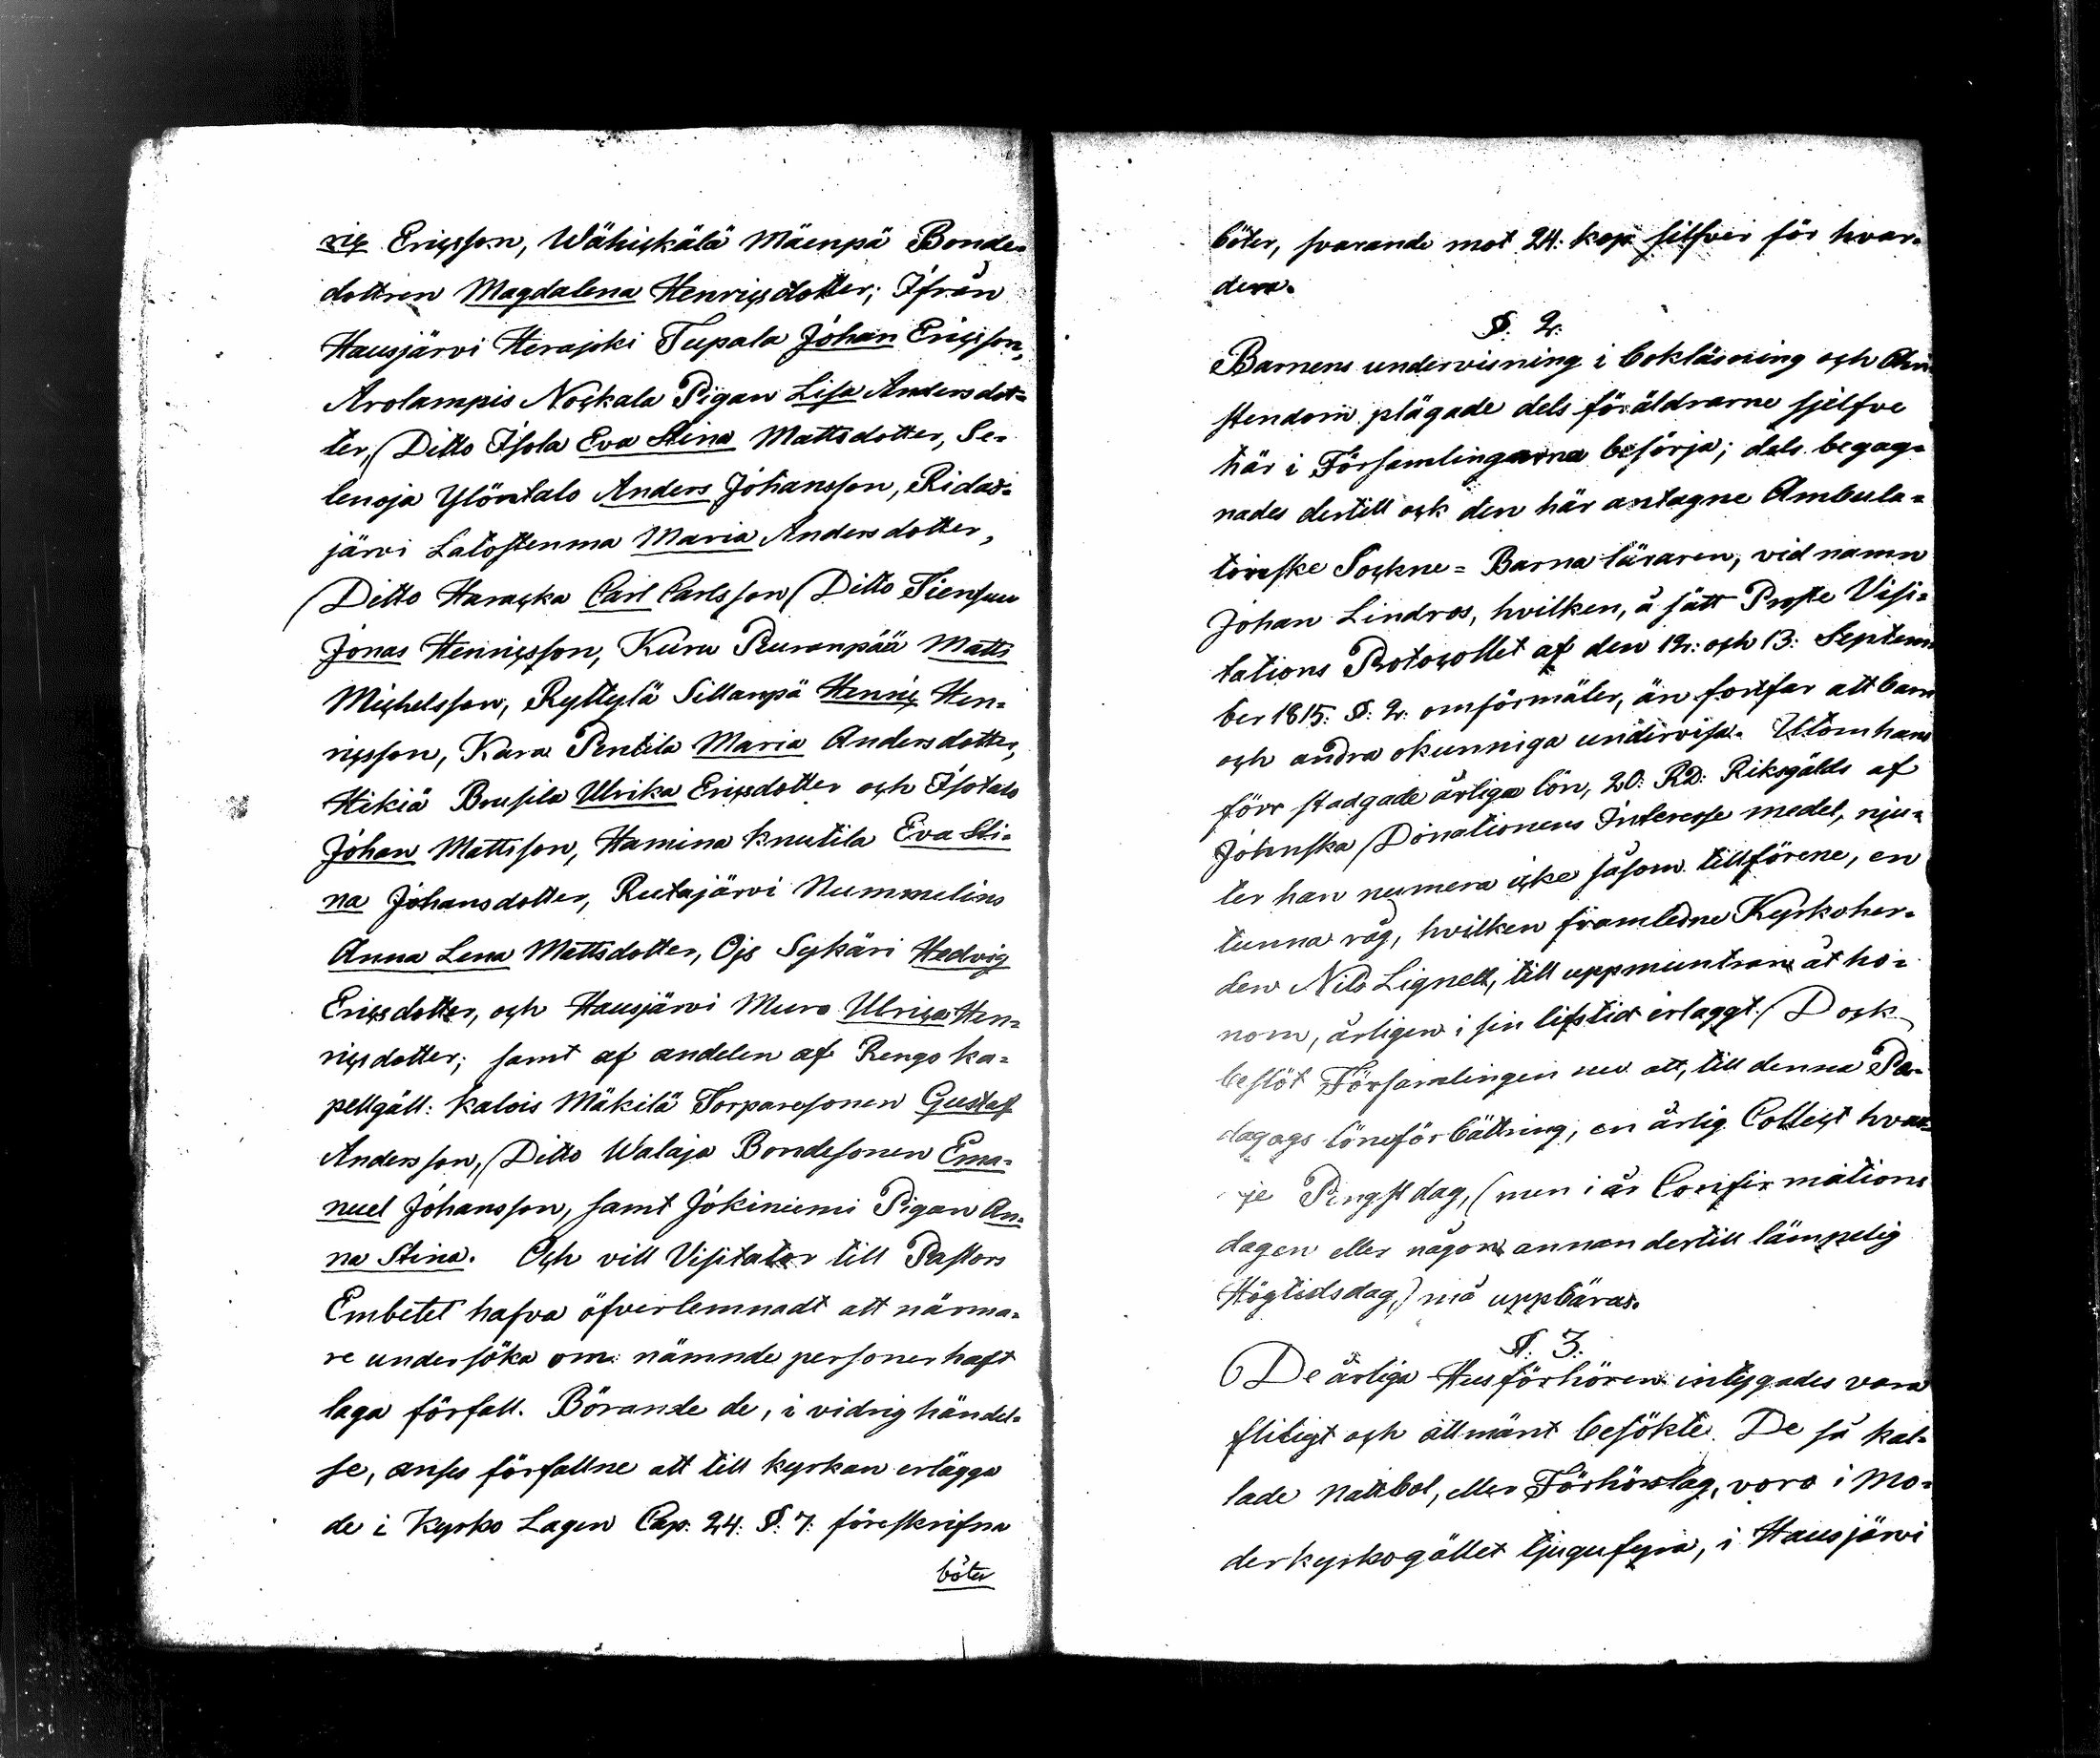 ric Ericsson, Wähickälä Mäenpä Bonde=
dottren Magdalena Henricsdotter; Ifrån
Hausjärvi Herajoki Tupala Johan Ericsson,
Arolampis Nockala Pigan Lisa Andersdot=
ter, Ditto Isola Eva Stina Mattsdotter, Se=
lenoja Ylöntalo Anders Johansson, Ridas=
järvi Latostenma Maria Andersdotter,
Ditto Haracka Carl Carlsson Ditto Tiensuu
Jonas Henricsson, Kuru Puranpää Matts
Michelsson, Ryttylä Sillanpä Henric Hen=
ricsson, Kara Pentila Maria Andersdotter,
Hikiä Brusila Ulrika Ericsdotter och Isotalo
Johan Mattsson, Hamina Knutila Eva Sti=
na Johansdotter, Rutajärvi Nummelins
Anna Lena Mattsdotter, Ojs Sykäri Hedvig
Ericsdotter, och Hausjärvi Muro Ulrica Hen=
ricsdotter; samt af andelen af Rengo ka=
pellgäll: Kalois Mäkilä Torparesonen Gustaf
Andersson, Ditto Walaja Bondesonen Ema=
nuel Johansson, samt Jokiniemi Pigan An=
na Stina. Och vill Visitator till Pastors
Embetet hafva öfverlemnadt att närma=
re undersöka om nämnde personer haft
laga förfall. Börande de, i vidrig händel=
se, anses förfallne att till kyrkan erlägga
de i Kyrko Lagen Cap. 24. §. 7. föreskrifna
böter
böter, svarande mot 24: kop silfver för hvar=
dera.
§. 2.
Barnens undervisning i bokläsning och Chri
stendom plägade dels föräldrarne sjelfve
här i Församlingarna besörja; dels begag=
nades dertill ock den här antagne Ambula=
toriske Sockne= Barna läraren, vid namn
Johan Lindros, hvilken, å sätt Proste Visi=
tations Protocollet af den 12: och 13: Septem
ber 1815: §: 2. omförmäler, än fortfar att barn
och andra okunniga undervisa. Utom hans
förr stadgade årliga lön, 20: RD: Riksgälds af
Johnska Donationens Interesse medel, nju=
ter han numera icke såsom tillförene, en
tunna råg, hvilken framledne Kyrkoher=
den Nils Lignell, till uppmuntran åt ho=
nom, årligen i sin lifstid erlaggt. Dock
beslöt Församlingen nu att, till denna Pe=
dagogs löneförbättring, en årlig Collect hvar=
je Pingstdag, (men i år Confirmations
dagen eller någon annan dertill lämpelig
Högtidsdag,) må uppbäras.
§. 3.
De årliga Husförhören intygades vara
flitigt och allmänt besökte. De så kal=
lade Nattbol, eller Förhörslag, voro i Mo=
derkyrkogället tjugufyra, i Hausjärvi